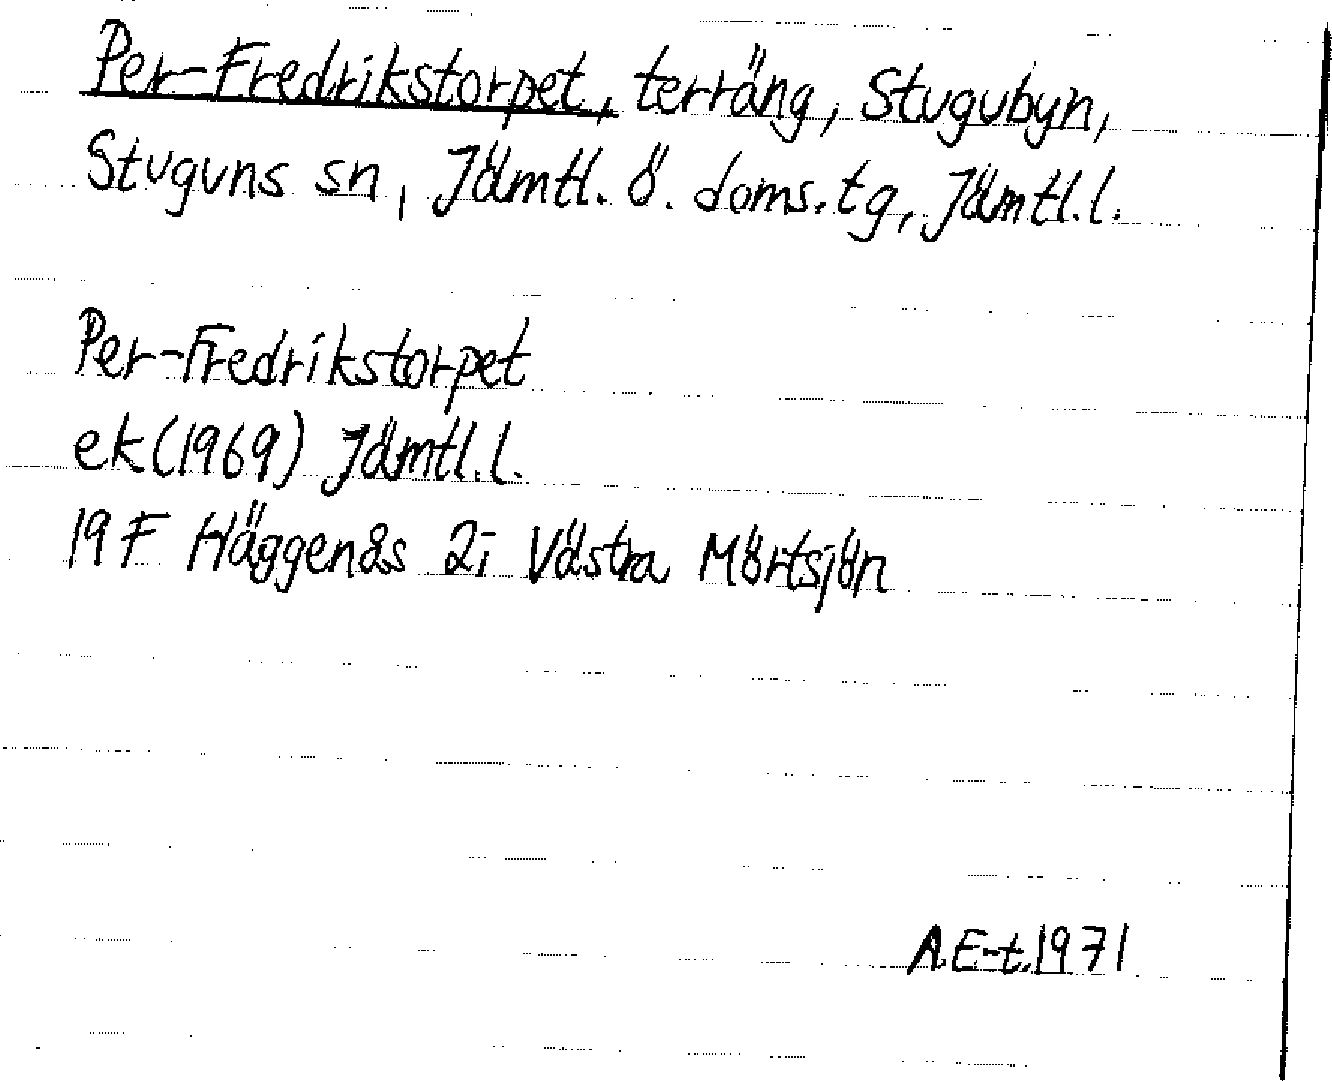 Per-Fredrikstorpet, terräng, Stugubyn,
Stuguns sn, Jämtl. ö. doms.tg, Jämtl.l.
Per-Fredrikstorpet
ek (1969) Jämtl.l.
19 F Häggenås 2i Västra Mörtsjön
A.E-t.1971